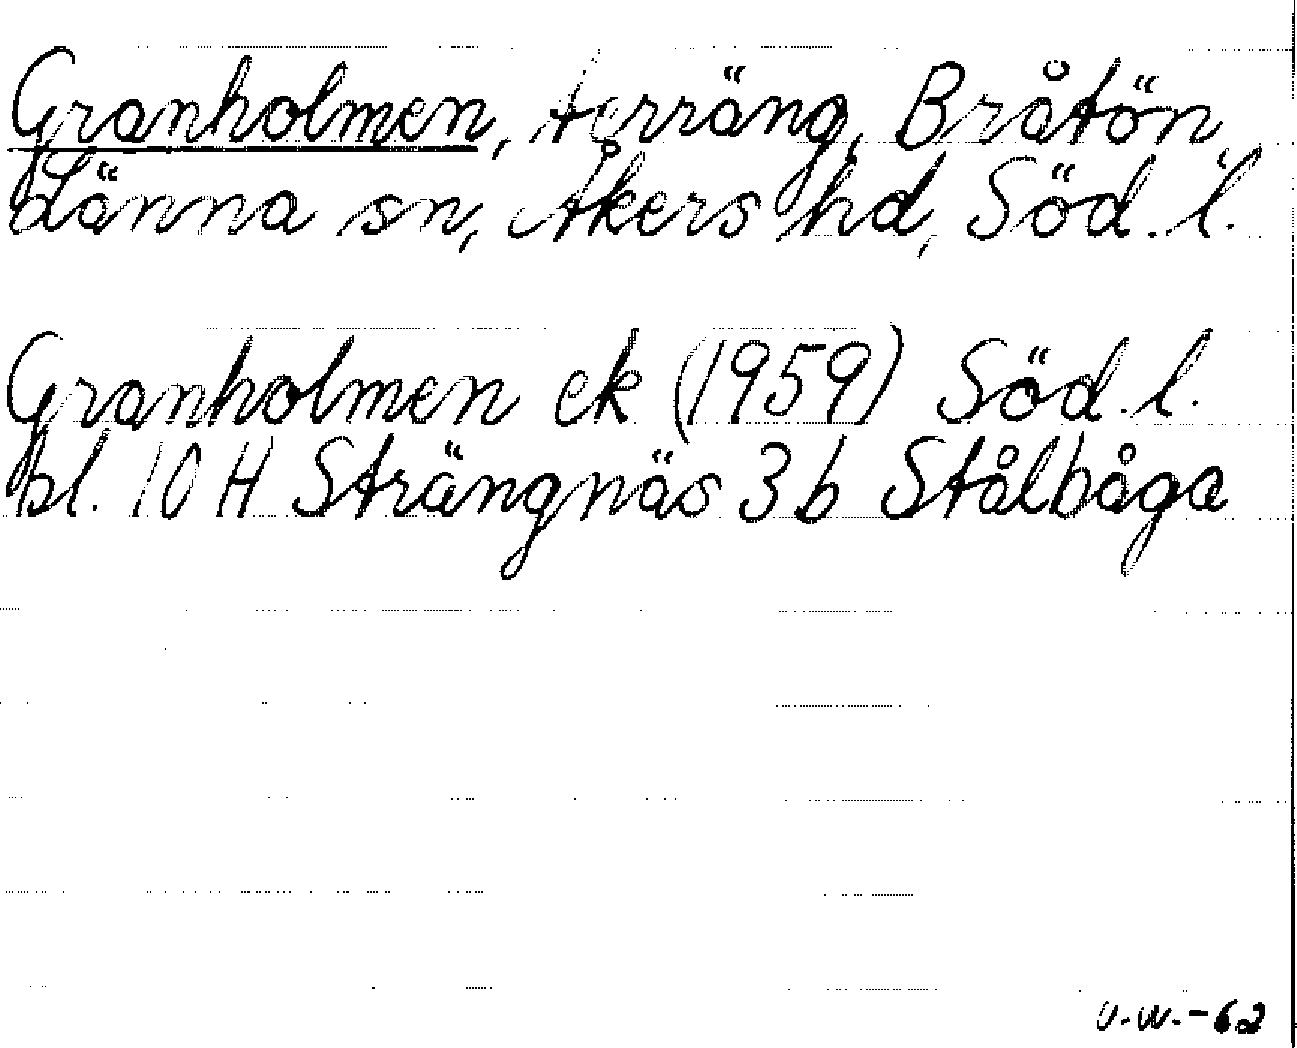 Granholmen, terräng, Bråtön,
Länna sn, Åkers hd, Söd. l.
Granholmen ek (1959) Söd. l.
bl. 10 H Strängnäs 3 b Stålbåga
U.W.-62